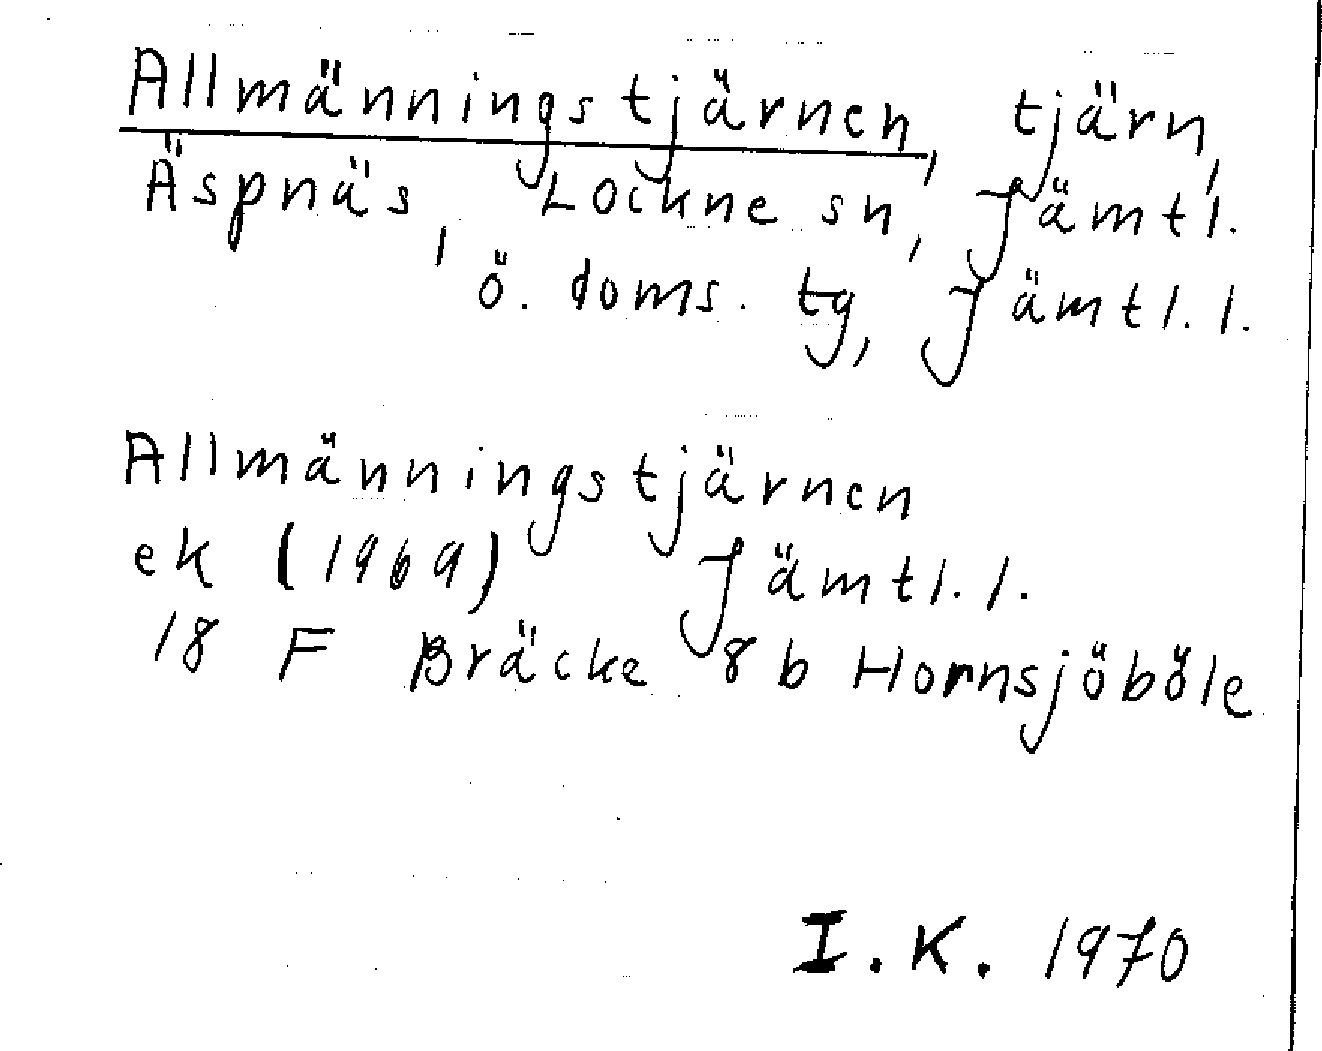 Allmänningstjärnen, tjärn,
Äspnäs, Lockne sn, Jämtl.
ö. doms. tg, Jämtl. l.
Allmänningstjärnen
ek (1969) Jämtl. l.
18 F Bräcke 8 b Hornsjöböle
I. K. 1970